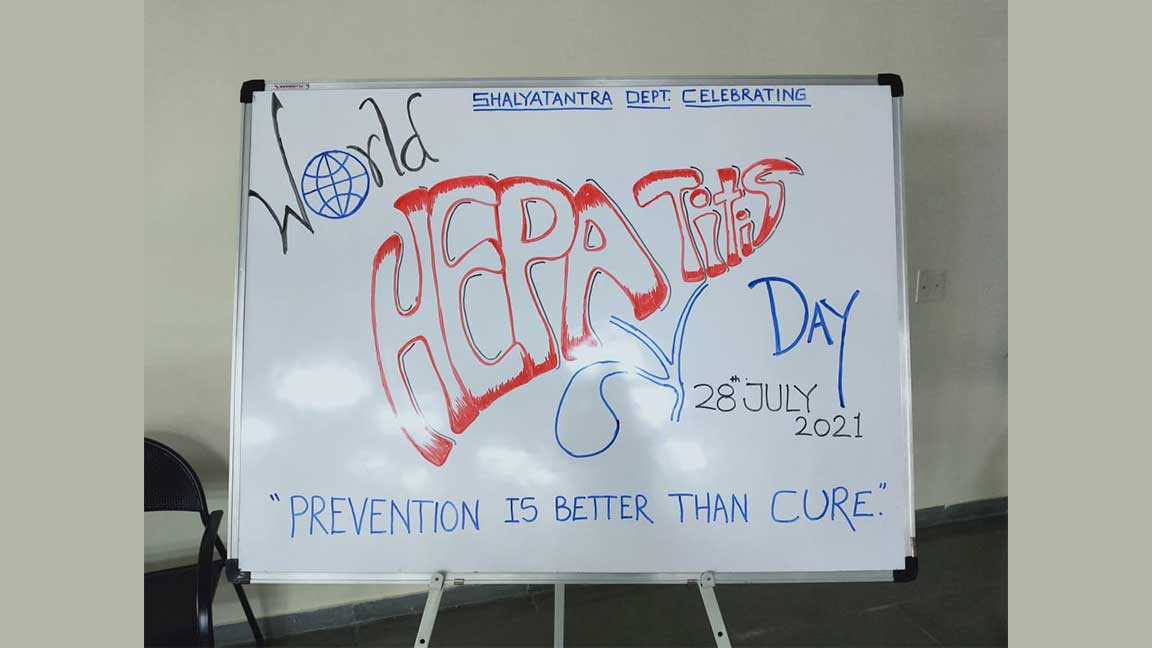 SHALYATANTRA DEPT. CELEBRATING
World
HEPATitiS
DAY
28th JULY
2021
"PREVENTION IS BETTER THAN CURE."